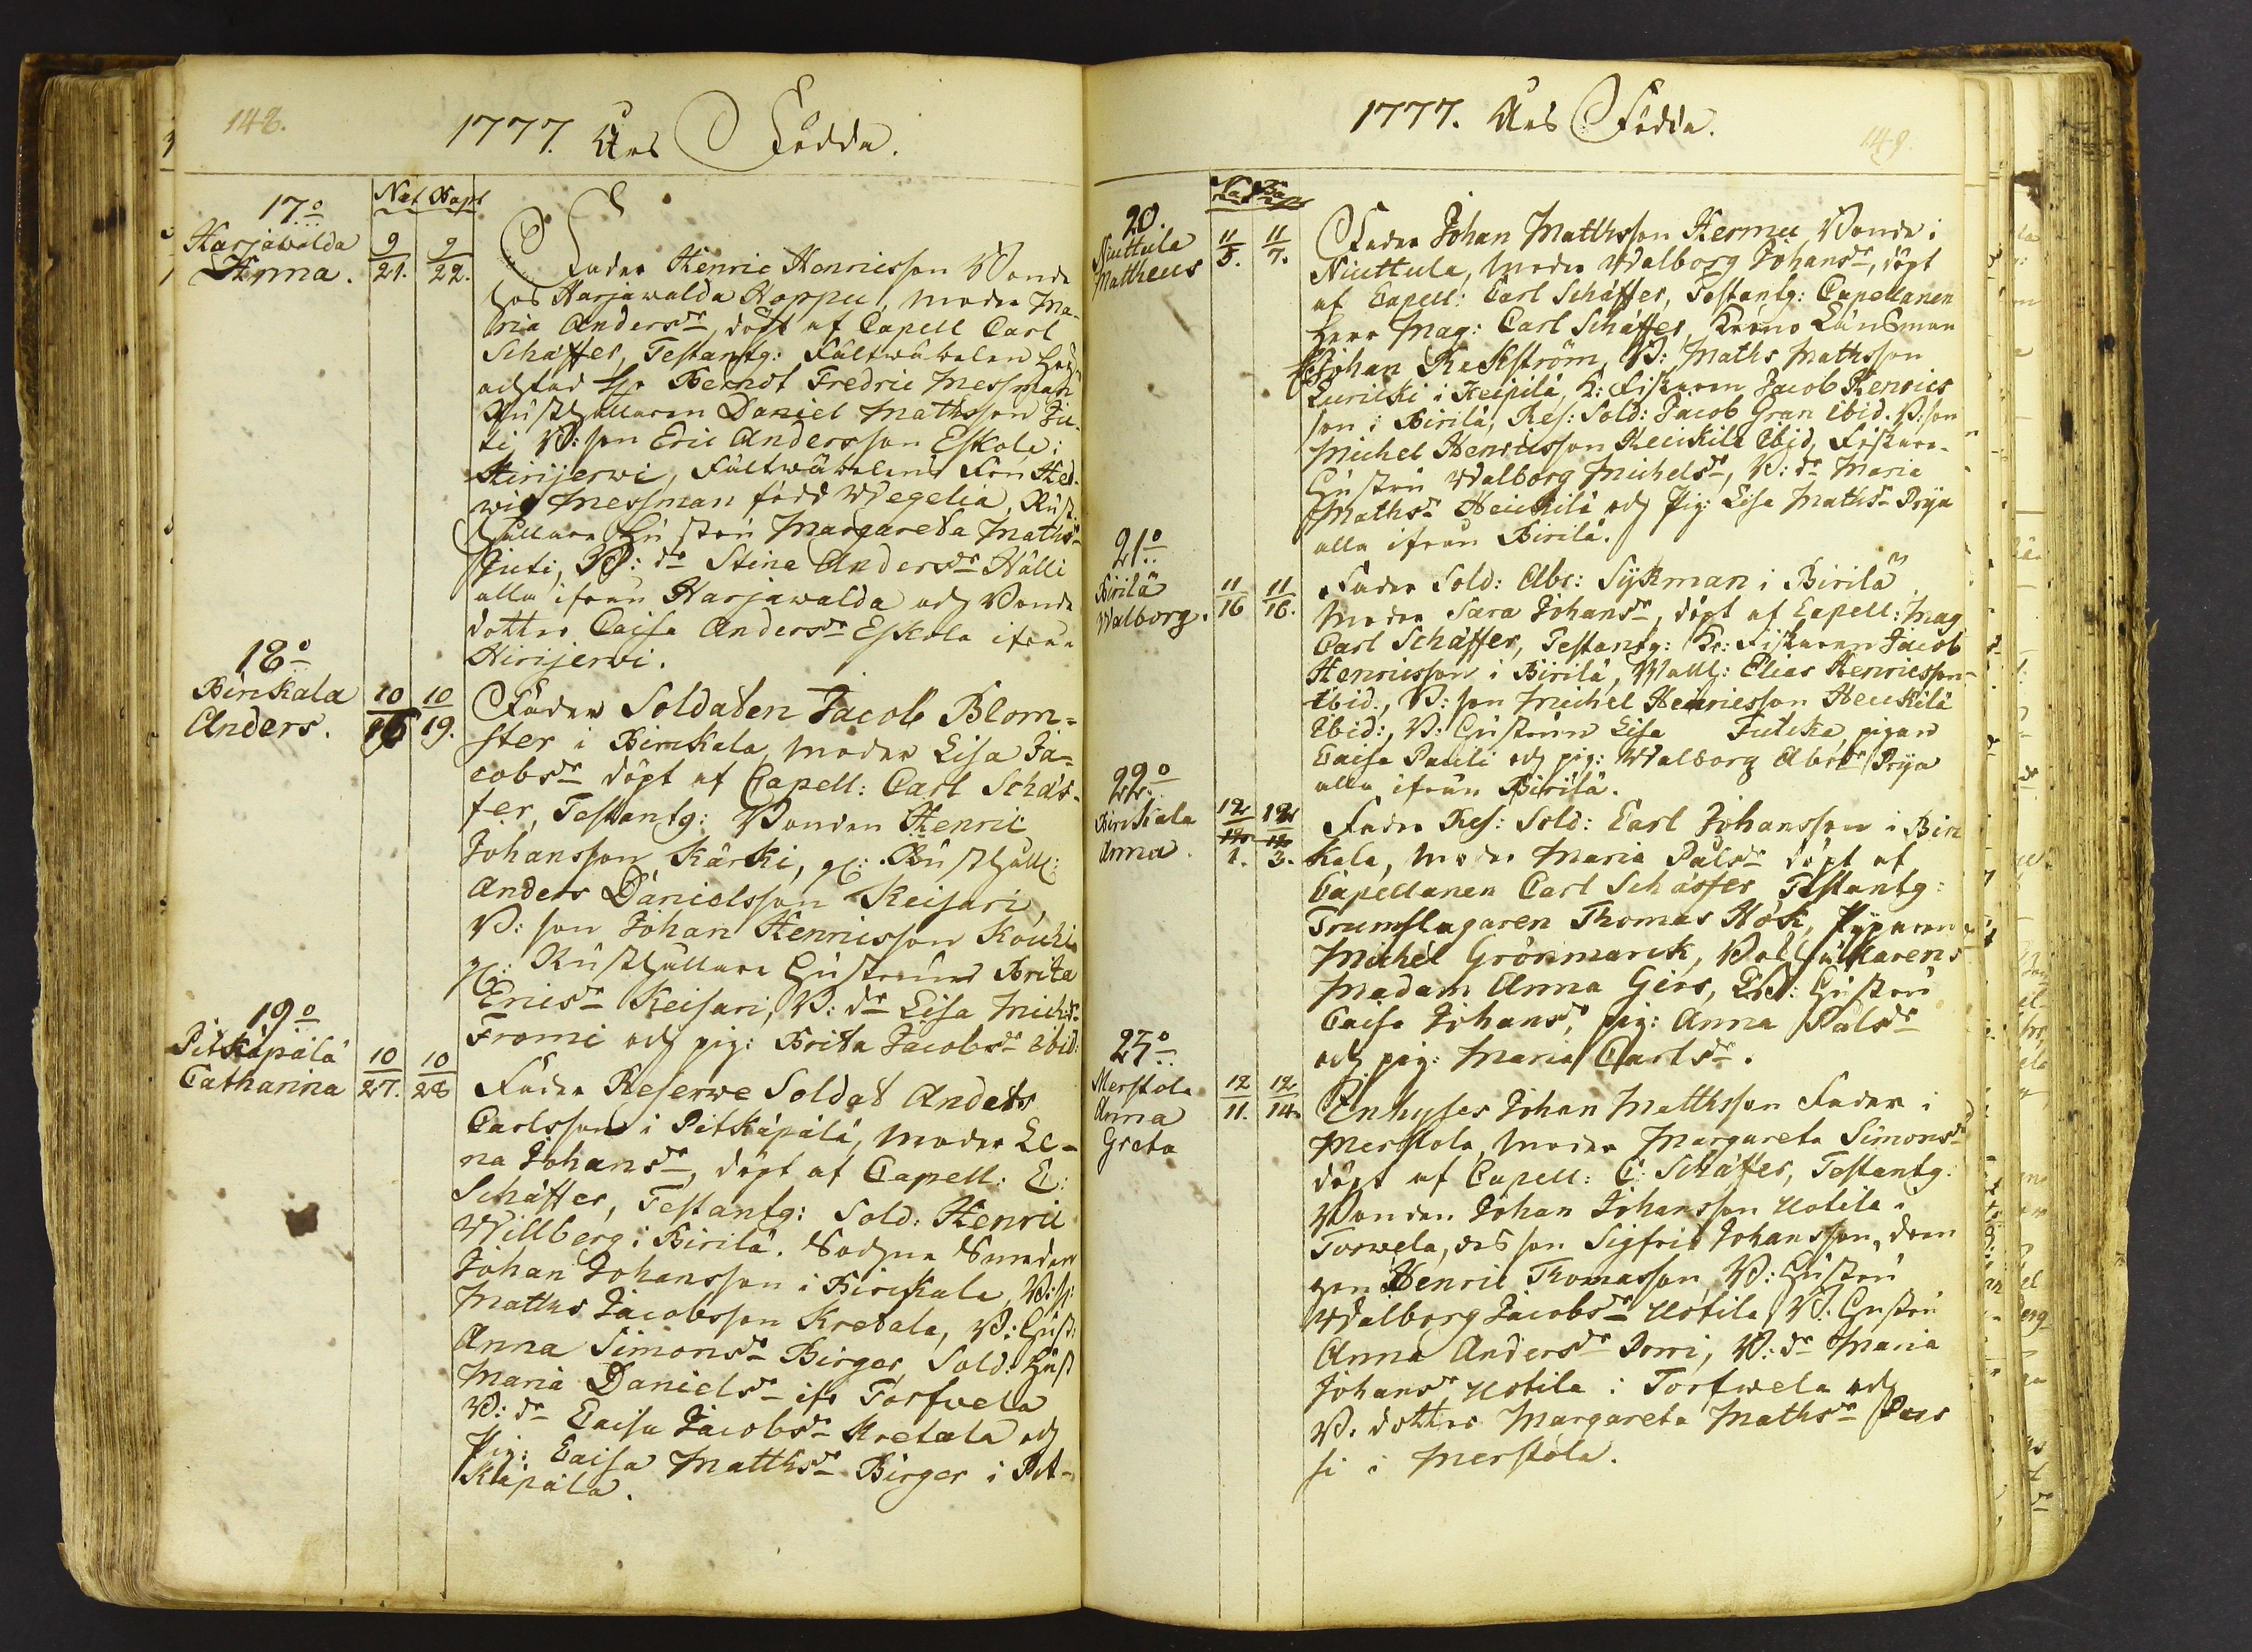 148.
1777. Års Födda.
Nat Bapt
17:o
Harjawalda
Anna.
9/21. 9/22.
Fader Henric Henricsson Bonde
hos Harjawalda Hoppu, Moder Ma-
ria Andersdr, döpt af Capell Carl
Schäffer, Testantg: Fältwäbelen
Berndt Fredric Messman
Rusthållaren Daniel Mathsson Ju-
ti B: son Eric Andersson Eskola i
Hirijerwi, Fältwäbelens Fru Hed-
wig Messman född Wegelia, Rust-
hållare Hustru Margareta Mathsdr
Juti, B: dr Stina Andersdr Hälli
alla ifrån Harjawalda och Bonde
dotter Caisa Andersdr Eskola ifrån
Hirijerwi.
18:o
Birckala
Anders.
10/16 10/19.
Fader Soldaten Jacob Blom-
ster i Birckala, Moder Lisa Ja-
cobsdr döpt af Capell: Carl Schäf-
fer, Testantg: Bonden Henric
Johansson Kärki, Rusthåll:
Anders Danielsson Keisari,
B: son Johan Henricsson Kouhi
Rusthållare Hustrun Brita
Ericsdr Keisari, B: dr Lisa Michdr
Fromi och pig: Brita Jacobsdr ibid:
19:o
Pitkäpälä
Catharina
10/27. 10/28
Fader Reserwe Soldat Anders
Carlsson i Pitkäpälä, Moder Le-
na Johansdr, döpt af Capell: C:
Schäffer, Testantg: Sold: Henric
Willberg i Birilä. Sochne Smeden
Johan Johansson i Birckala, B: s:
Matths Jacobsson Kretala, B: Hust:
Anna Simonsdr Birger, Sold: Hust
Maria Danielsdr ifr Torfwela
B: dr Caisa Jacobsdr Kretala och
Pig: Caisa Matthsdr Birger i Pit-
käpälä.
1777. Års Födda.
149.
Nat Bapt
20.
Niuttula
Mattheus
11/5. 11/7.
Fader Johan Matthsson Hermu Bonde i
Niuttula, Moder Walborg Johansdr, döpt
af Capell: Carl Schäffer, Testantg: Capellanen
Herr Mag: Carl Schäffer, Krono Länsman
Johan Reckström, B: Maths Mathsson
i Heipilä, K: Fiskaren Jacob Henrics
son i Birilä, Res: Sold: Jacob Gran ibid. B: son
Michel Henricsson Heickilä ibid, Fiskare-
Hustru Walborg Michelsdr, B: dr Maria
Mathsdr Heickilä och Pig: Lisa Mathsdr Prya
alla ifrån Birilä.
21:o
Birilä
Walborg.
11/16 11/16.
Fader Sold: Abr: Sijkman i Birilä
Moder Sara Johansdr, döpt af Capell: Mag
Carl Schäffer, Testantg: Kr: Fiskaren Jacob
Henricsson i Birilä, Elias Henricsson
ibid., B: son Michel Henricsson Heickilä
ibid:, B: Hustrun Lisa pigan
Caisa Pauli och pig: Walborg Abrdr Prya
alla ifrån Birilä.
22:o
Birckala
Anna.
12/1. 12/3.
Fader Res: Sold: Carl Johansson i Birc
kala, Moder Maria Pålsdr döpt af
Capellanen Carl Schäffer, Testantg:
Trumslagaren Thomas Hök, Pyparen
Michel Grönmarck,
Madam Anna Giers, Hustru
Caisa Johansdr, Pig: Anna Pålsdr
och pig: Maria Carlsdr.
23:o
Merstola
Anna
Greta
12/11. 12/14.
Enhyses Johan Matthsson Fader i
Merstola, Moder Margareta Simonsdr
döpt af Capell: C: Schäffer, Testantg.
Bonden Johan Johansson Uotila i
Torwela, des son Sigfrid Johansson, dren
gen Henric Thomasson, B: Hustru
Walborg Jacobsdr Uotila, B: Hustru
Anna Andersdr Porri, B: dr Maria
Johansdr Uotila i Torfwela och
B. dotter Margareta Mathsdr Pas
si i Merstola.